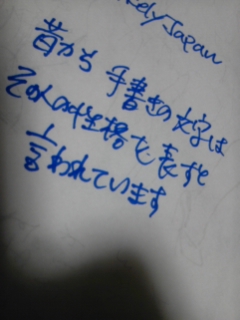 Japan
昔から 手書きの文字は
その人の性格を表すと
言われています